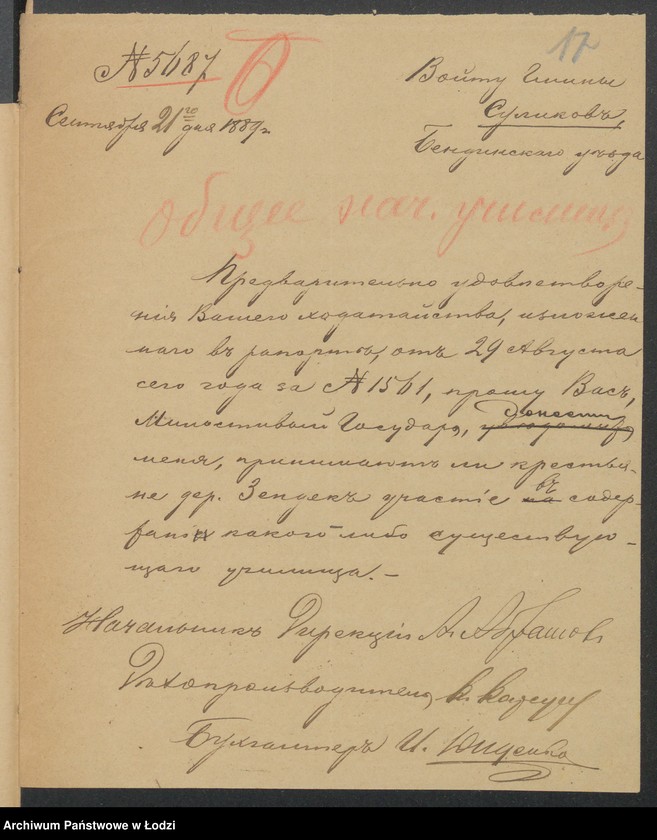 17
№ 5687
Сентября 21го дня 1889 г.
Войту Гмины
Суликовъ,
Бендинскаго уѣзда
Общее нач. училище
Предварительно удовлетворе-
нія Вашего ходатайства, изложен
наго въ рапортѣ, отъ 29 Августа
сего года за № 1561, прошу Васъ,
Милостивый Государь, донести
меня, принимаютъ ли крестья-
не дер. Зендекъ участіе въ содер-
жаніи какого-либо существую-
щаго училища.-
Начальникъ Дирекціи А.
Дѣлопроизводитель К.
Бухгалтеръ И. Ющенко
Archiwum Państwowe w Łodzi